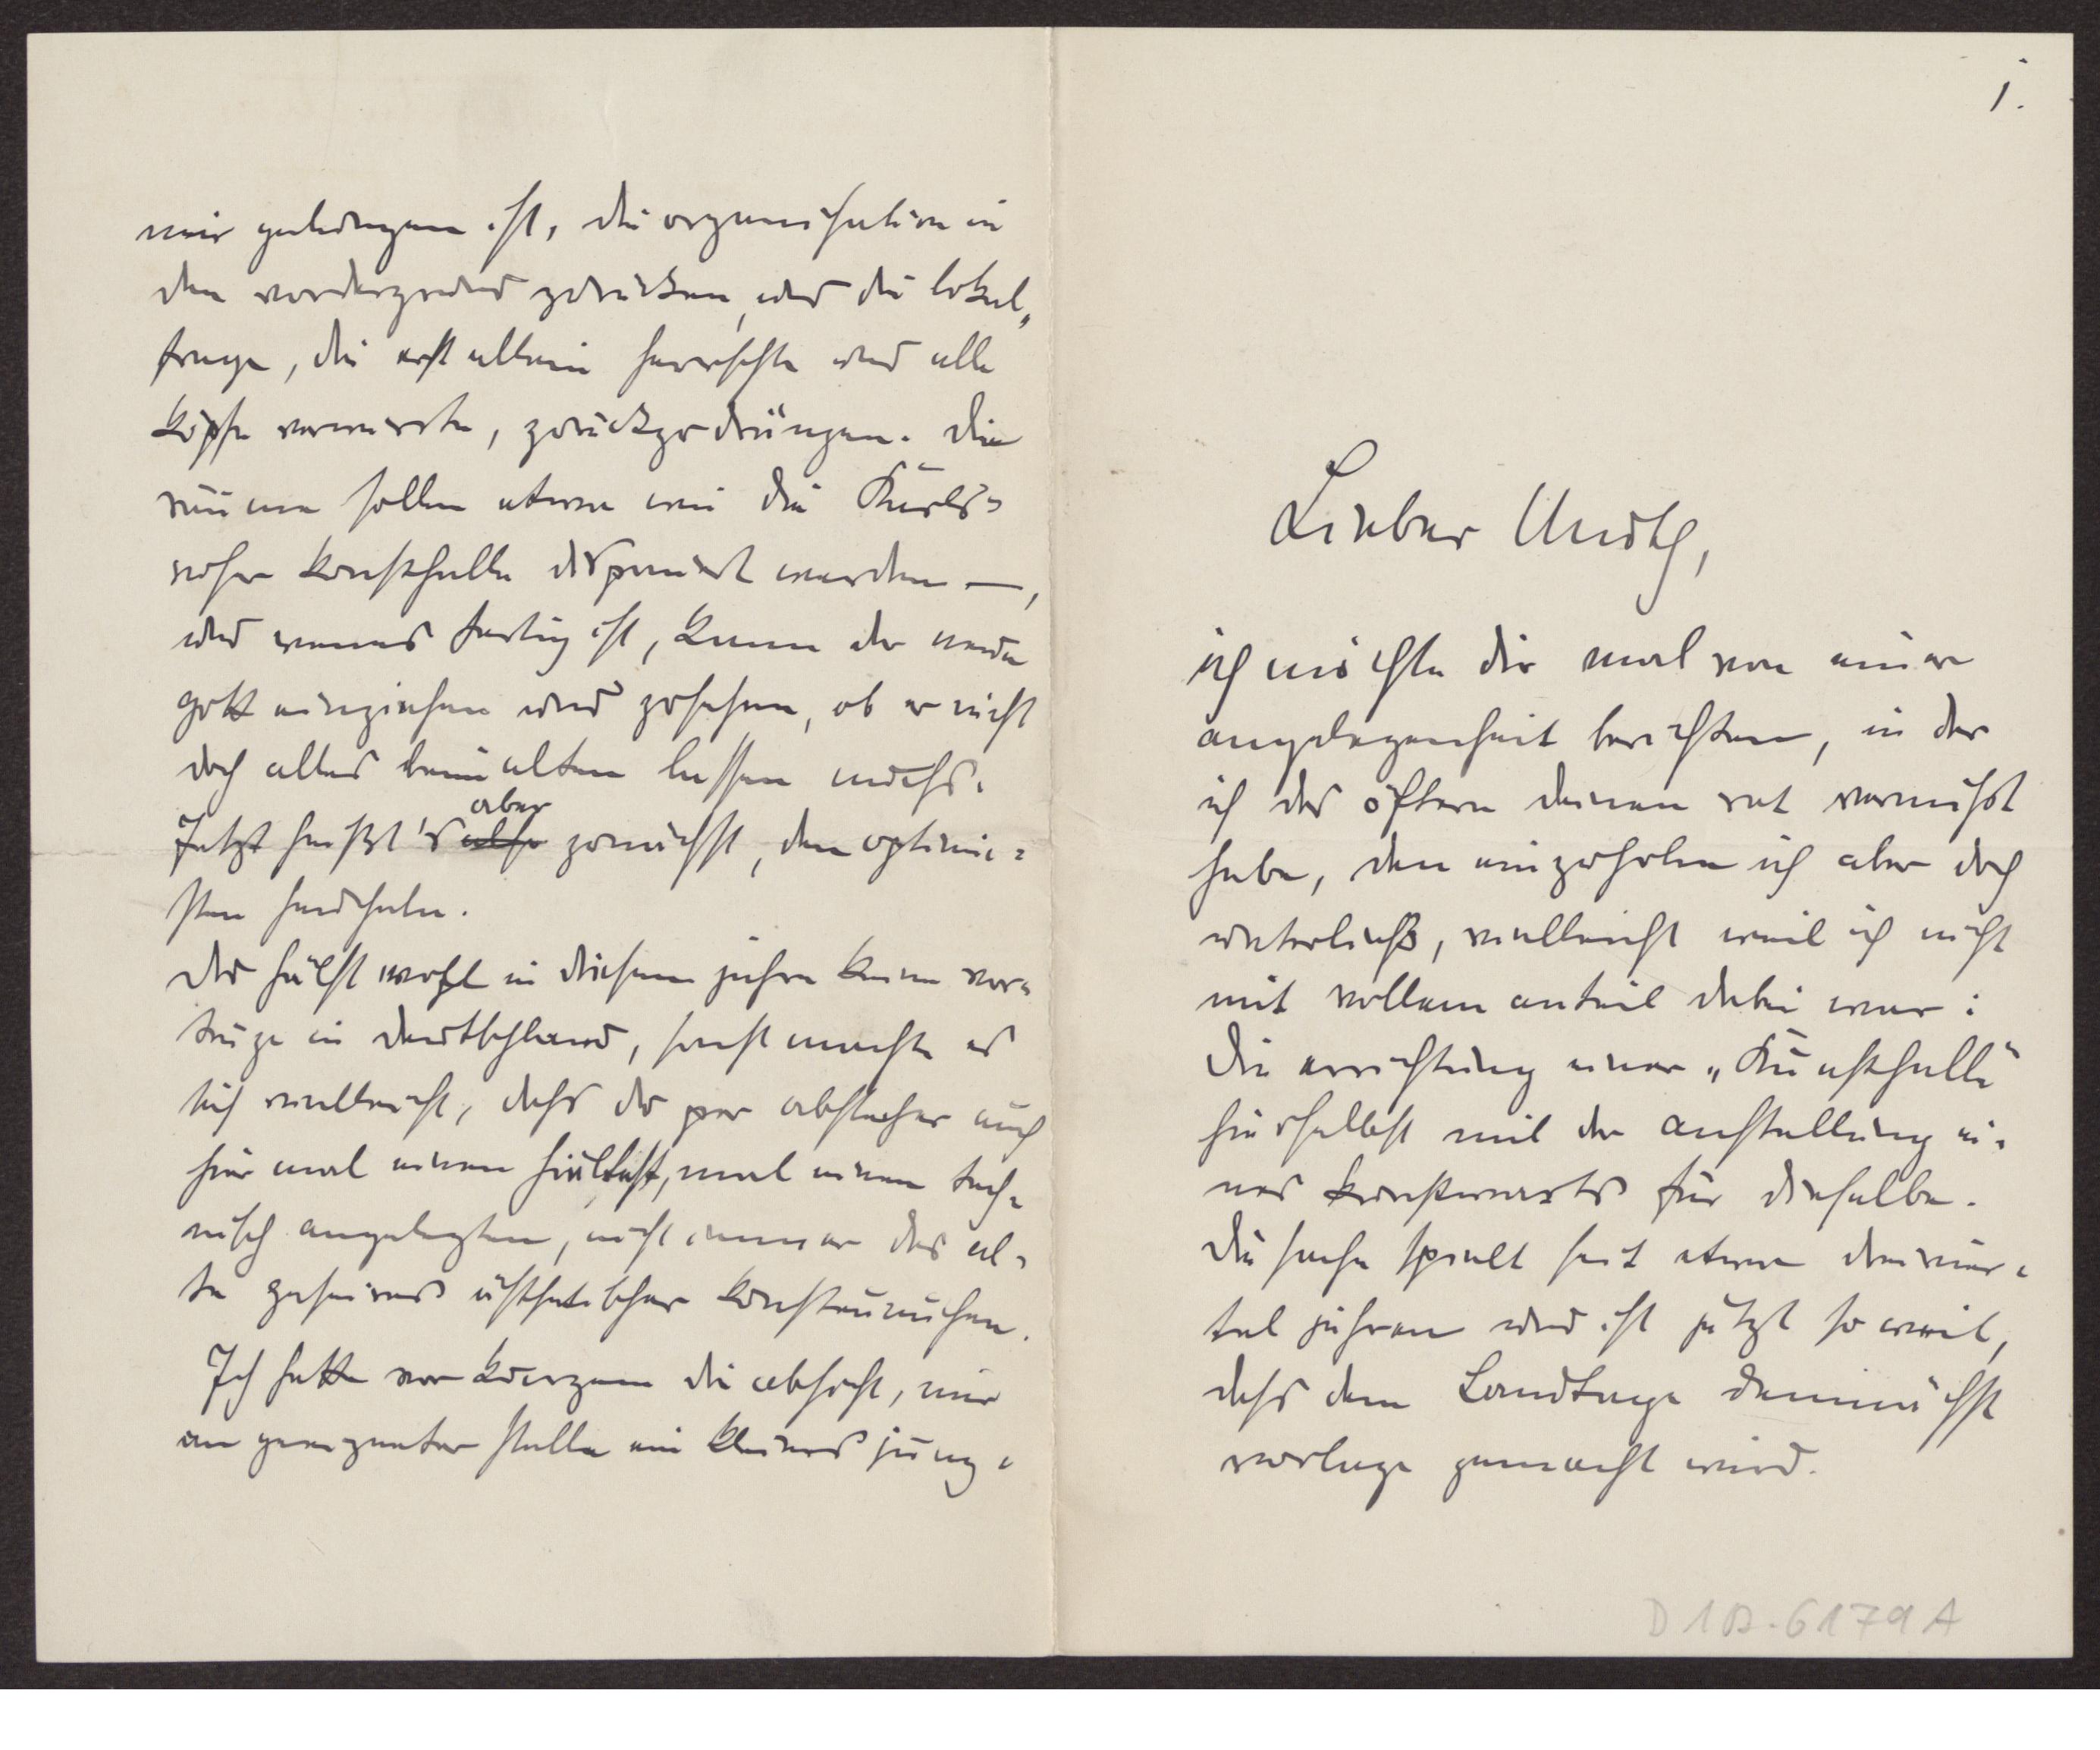 mir gelungen ist, die organisation in
den vordergrund zdrücken, und die lokal„
frage, die erst allein herrschte und alle
köpfe verwirrte, zurückzudrängen. Die
räume sollen etwa wie die Karls=
ruher kunsthalle disponirt werden —,
und wenns fertig ist, kann der neue
gott einziehen und zusehen, ob er nicht
doch alles beim alten lassen muss.
Jetzt heisst's aber zunächst, den optimi=
sten herdhalu.
du hälst wohl in diesem jahre keine vor=
träge in deutschland, sonst machte es
sich vielleicht, dass du per abstecher auch
hier mal einen hieltest, mal einen tech=
nisch angelegten, nicht immer das al=
te geseires ästhetischer kunsteunuchen.
Ich hatte vor kurzem die absicht, mir
an geeigneter stelle ein kleines jung=
1.
Lieber Muth,
ich möchte dir mal von einer
angelegenheit berichten, in der
ich des öftern deinen rat vermisst
habe, den einzuholen ich aber doch
unterliess, vielleicht weil ich nicht
mit vollem anteil dabei war:
Die errichtung einer „Kunsthalle“
hierselbst mit der anstellung ei=
nes kunstwarts für dieselbe.
Die sache spielt seit etwa dreivier=
tel jahren und ist jetzt so weit,
dass dem Landtage demnächst
vorlage gemacht wird.
D 18.6179 A